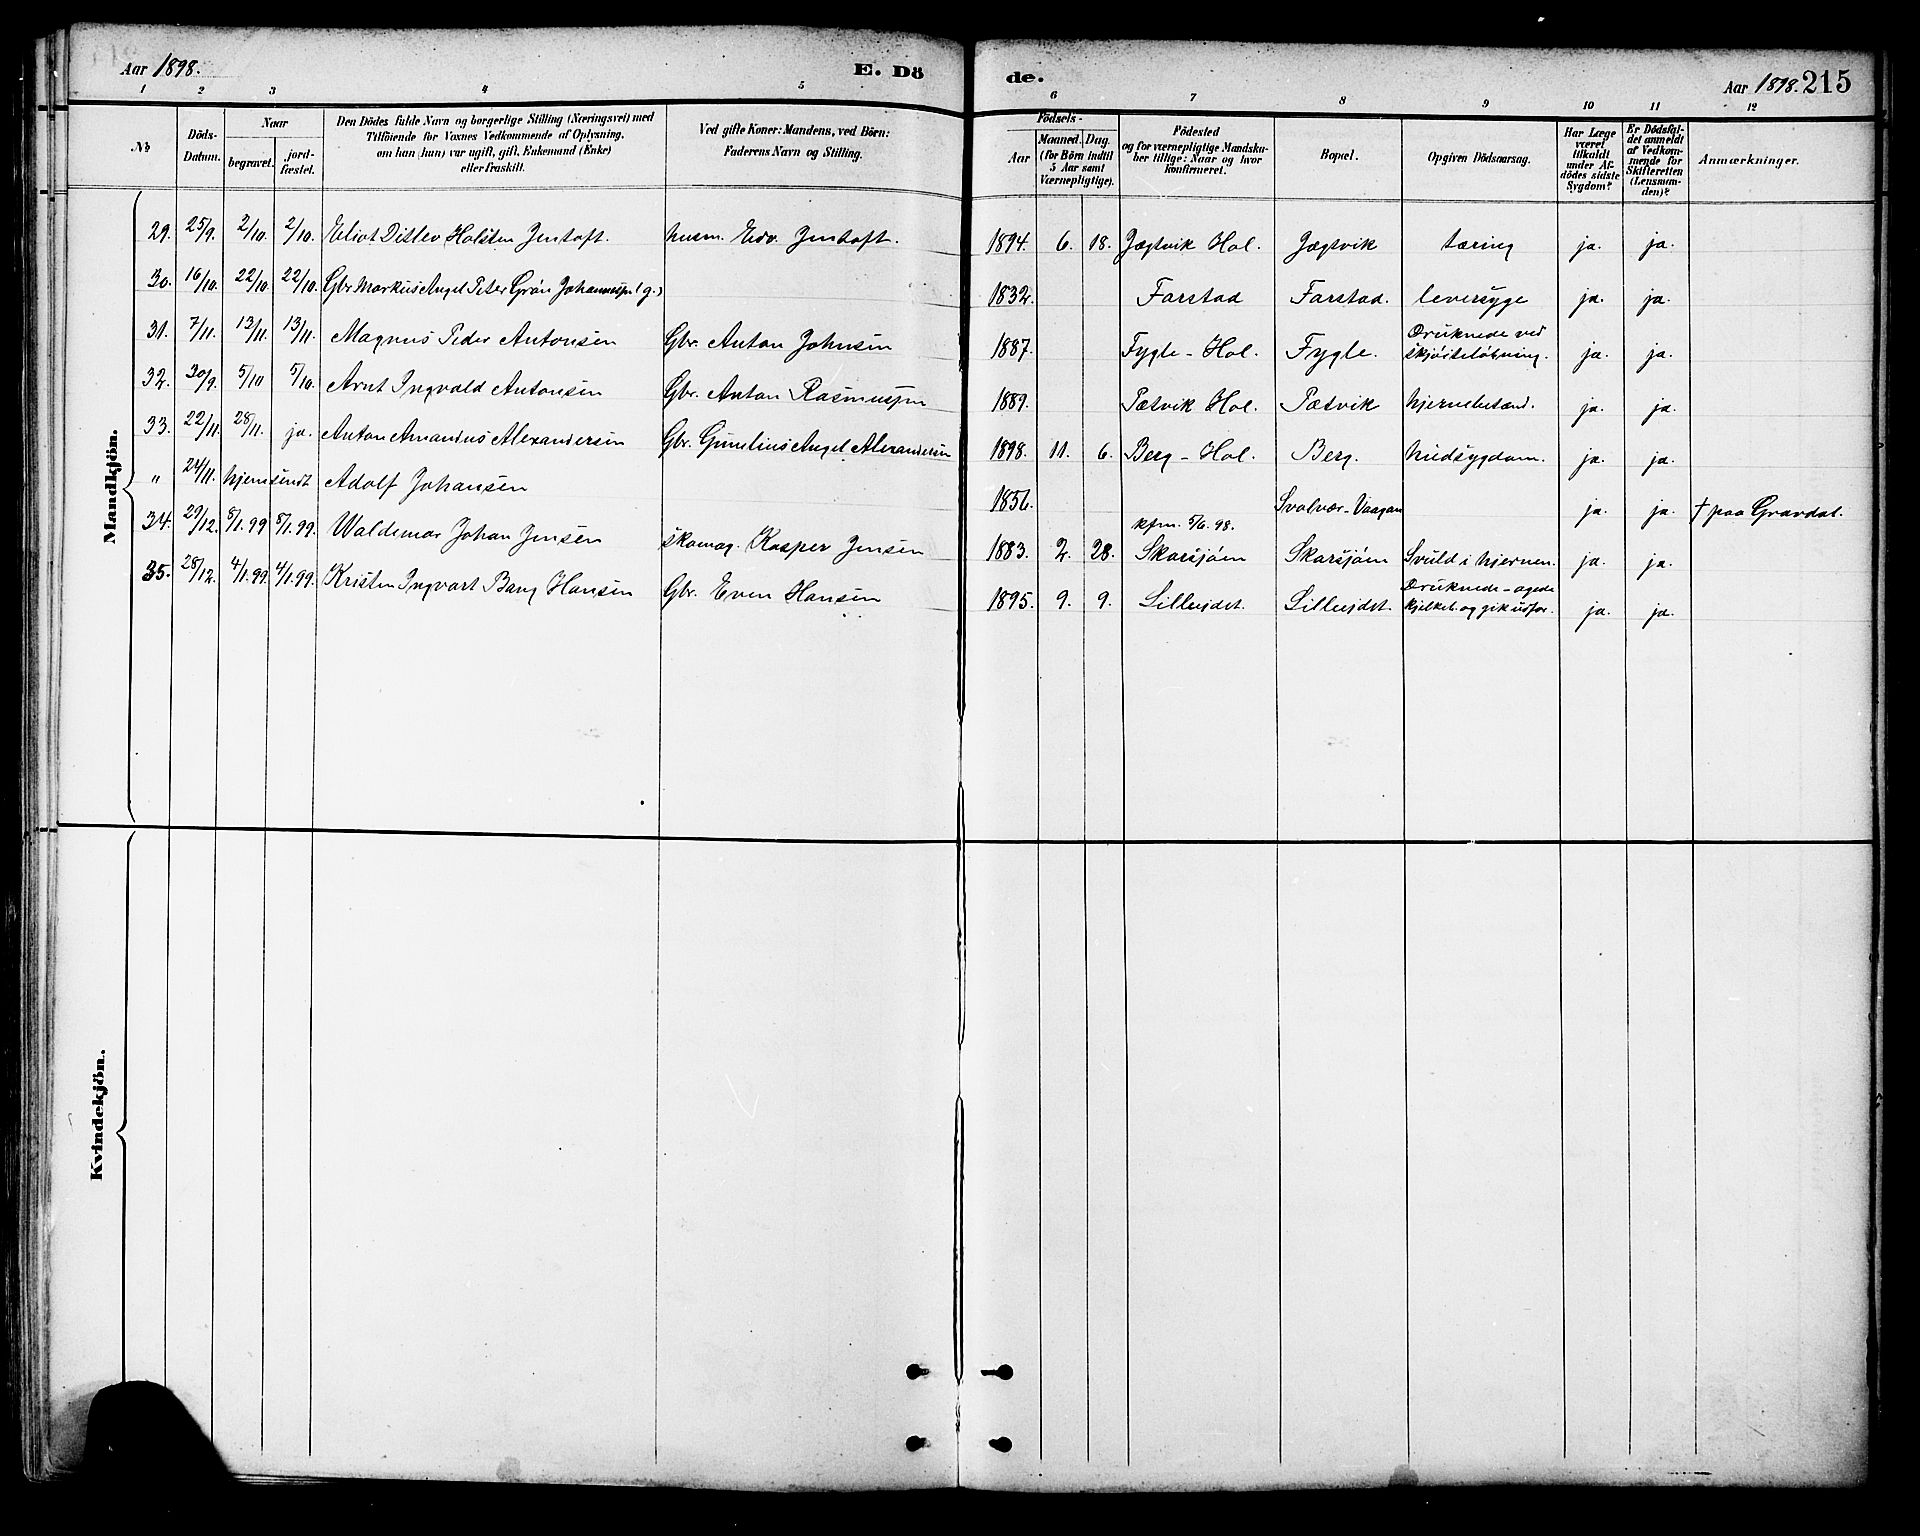 Aar 1898.
E. Dö
de.
Aar 1898. 215
1 2 3 4 5 6 7 8 9 10 11 12
No
Döds-
Datum.
Naar
begravet.
jord-
fæstet.
Den Dödes fulde Navn og borgerlige Stilling (Næringsvei) med
Tilföiende for Voxnes Vedkommende af Oplysning,
om han (hun) var ugift, gift, Enkemand (Enke)
eller fraskilt.
Ved gifte Koner: Mandens, ved Börn:
Faderens Navn og Stilling.
Födsels-
Aar
Maaned. Dag.
(for Börn indtil
5 Aar samt
Værnepligtige).
Födested
og for værnepligtige Mandsku-
ber tillige: Naar og hvor
konfirmeret.
Bopæl.
Opgiven Dödsaarsag.
Har Læge
været
tilkaldt
under Af-
dödes sidste
Sygdom?
Er Dödsfal-
det anmeldt
af Vedkom-
mende for
Skifteretten
(Lensman-
den)?
Anmærkninger.
Mandkjön.
29. 25/9. 2/10. 2/10. Eliot Ditlev Holsten Jentoft. husm. Edv. Jentoft. 1894. 6. 18. Jægtvik Hol. Jægtvik tæring ja. ja.
30. 16/10. 22/10. 22/10. Gbr. Markus Angel Peter Grön Johannessen (g.) 1832. Farstad Farstad. leversyge ja. ja.
31. 7/11. 13/11. 13/11. Magnus Peder Antonsen Gbr. Anton Johnsen 1887. Fygle - Hol. Fygle. Druknede ved
skjöiteløbning. ja. ja.
32. 30/9. 5/10 5/10. Arnt Ingvald Antonsen Gbr. Anton Rasmussen 1889. Petvik Hol. Petvik hjernebetænd. ja. ja.
33. 22/11. 28/11. ja. Anton Amandus Alexandersen Gbr. Gunelius Angel Alexandersen 1898. 11. 6. Berg - Hol. Berg. hudsygdom. ja. ja.
" 24/11. hjemsendt Adolf Johansen 1856. Svolvær - Vaagan ja. ja. † paa Gravdal.
34. 29/12. 8/1.99 8/1.99. Waldemar Johan Jensen skomag. Kasper Jensen 1883. 2. 28. kfm. 5/6. 98.
Skarsjøen Skarsjøen Svuld i hjernen. ja. ja.
35. 28/12. 4/1.99. 4/1.99. Kristen Ingvart Bang Hansen Gbr. Even Hansen 1895. 9. 9. Lilleeidet. Lilleeidet. Druknede - agede
kjelket og gik udfor. ja. ja.
Kvindekjön.